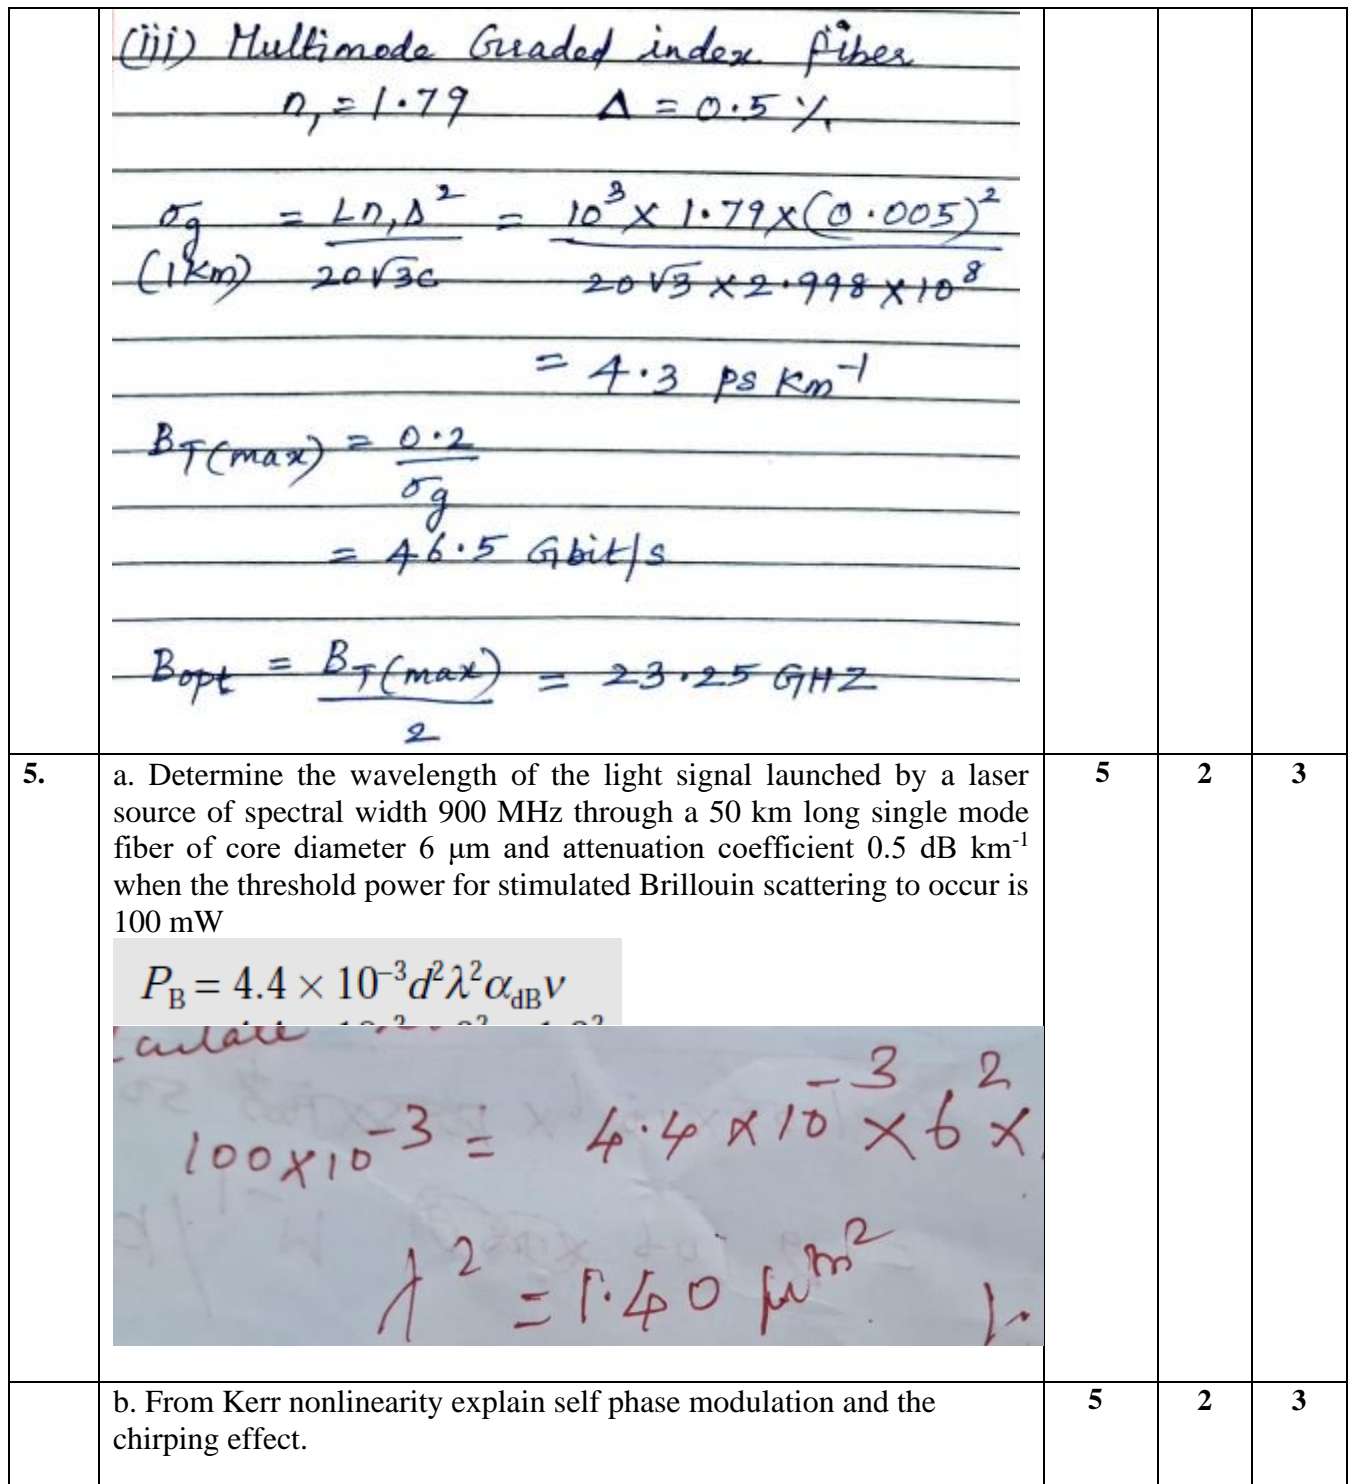 (iii) Multimode Graded index fiber
n₁ = 1.79 Δ = 0.5 %
σg (1km) = Ln₁Δ² / 20√3c = 10³ × 1.79 × (0.005)² / 20√3 × 2.998 × 10⁸
= 4.3 ps Km⁻¹
B_T(max) = 0.2 / σg
= 46.5 Gbit/s
Bopt = B_T(max) / 2 = 23.25 GHZ
5. a. Determine the wavelength of the light signal launched by a laser 5 2 3
source of spectral width 900 MHz through a 50 km long single mode
fiber of core diameter 6 μm and attenuation coefficient 0.5 dB km⁻¹
when the threshold power for stimulated Brillouin scattering to occur is
100 mW
P_B = 4.4 × 10⁻³d²λ²α_dBν
100×10⁻³ = 4.4 × 10⁻³ × 6² ×
λ² = 1.40 μm² 1.
b. From Kerr nonlinearity explain self phase modulation and the 5 2 3
chirping effect.